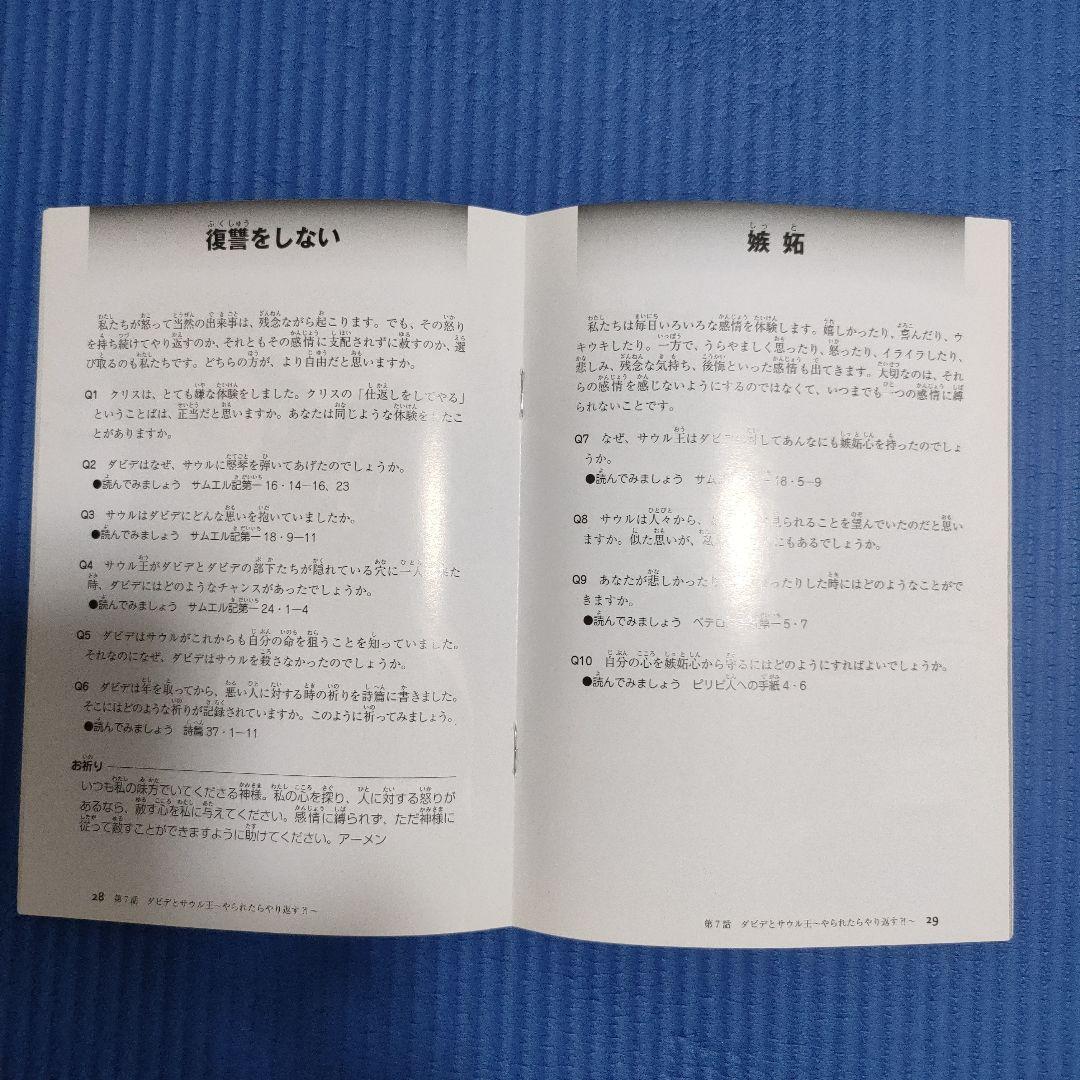 復讐をしない
私たちが怒って当然の出来事は、残念ながら起こります。でも、その怒り
を持ち続けてやり返すのか、それともその感情に支配されずに赦すのか、選
び取るのも私たちです。どちらの方が、より自由だと思いますか。
Q1 クリスは、とても嫌な体験をしました。クリスの「仕返しをしてやる」
ということばは、正当だと思いますか。あなたは同じような体験をしたこ
とがありますか。
Q2 ダビデはなぜ、サウルに竪琴を弾いてあげたのでしょうか。
●読んでみましょう サムエル記第一 16・14−16、23
Q3 サウルはダビデにどんな思いを抱いていましたか。
●読んでみましょう サムエル記第一 18・9−11
Q4 サウル王がダビデとダビデの部下たちが隠れている穴に一人 た
時、ダビデにはどのようなチャンスがあったでしょうか。
●読んでみましょう サムエル記第一 24・1−4
Q5 ダビデはサウルがこれからも自分の命を狙うことを知っていました。
それなのになぜ、ダビデはサウルを殺さなかったのでしょうか。
Q6 ダビデは年を取ってから、悪い人に対する時の祈りを詩篇に書きました。
そこにはどのような祈りが記録されていますか。このように祈ってみましょう。
●読んでみましょう 詩篇 37・1−11
お祈り
いつも私の味方でいてくださる神様。私の心を探り、人に対する怒りが
あるなら、赦す心を私に与えてください。感情に縛られず、ただ神様に
従って赦すことができますように助けてください。アーメン
28 第7話 ダビデとサウル王〜やられたらやり返す?!〜
嫉妬
私たちは毎日いろいろな感情を体験します。嬉しかったり、喜んだり、ウ
キウキしたり。一方で、うらやましく思ったり、怒ったり、イライラしたり、
悲しみ、残念な気持ち、後悔といった感情も出てきます。大切なのは、それ
らの感情を感じないようにするのではなくて、いつまでも一つの感情に縛
られないことです。
Q7 なぜ、サウル王はダビデ 対してあんなにも嫉妬心を持ったのでしょ
うか。
●読んでみましょう サム 18・5−9
Q8 サウルは人々から、 見られることを望んでいたのだと思い
ますか。似た思いが、 にもあるでしょうか。
Q9 あなたが悲しかったり ったりした時にはどのようなことがで
きますか。
●読んでみましょう ペテロ 第一 5・7
Q10 自分の心を嫉妬心から守るにはどのようにすればよいでしょうか。
●読んでみましょう ピリピ人への手紙 4・6
第7話 ダビデとサウル王〜やられたらやり返す?!〜 29